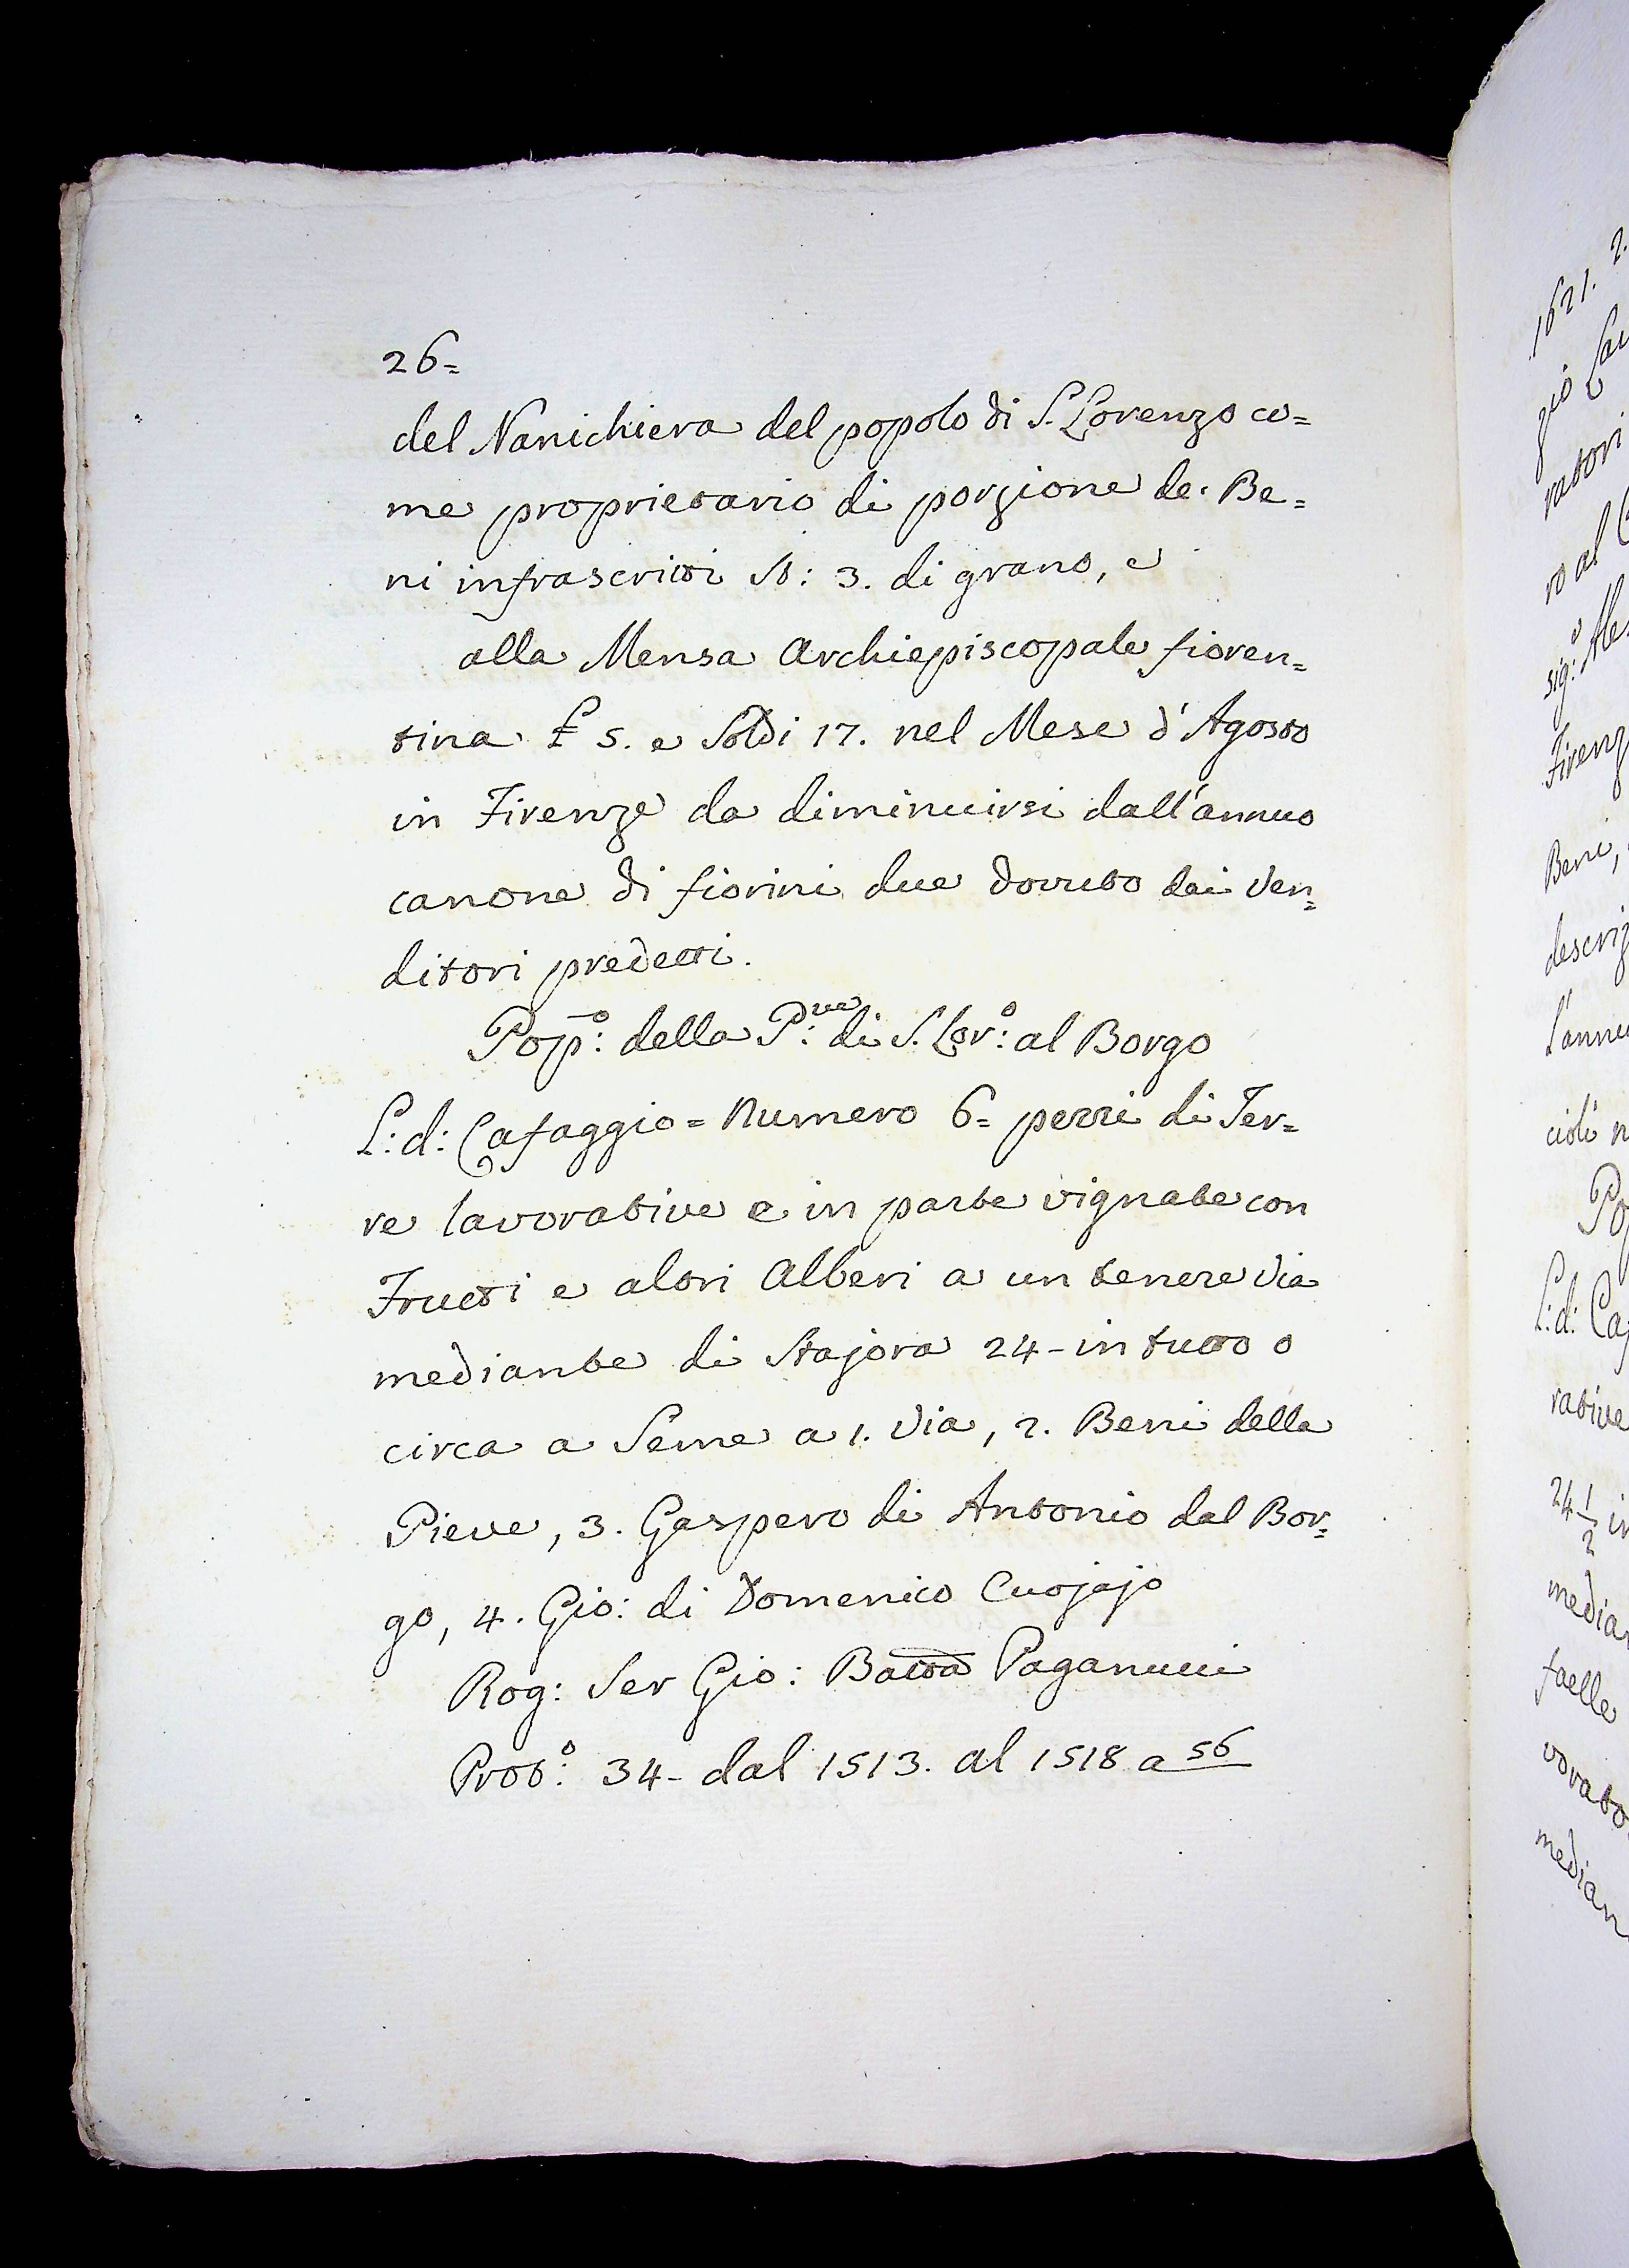 26=
del Nanichiera del popolo di S. Lorenzo co=
me proprietario di porzione de' Be=
ni infrascritti St: 3. di grano, e
alla Mensa Archiepiscopale fioren=
tina £ 5. e Soldi 17. nel Mese d'Agosto
in Firenze da diminuirsi dall'annuo
canone di fiorini due dovuto dai Ven=
ditori predetti.
Pop:º della P:ve di S. Lor:º al Borgo
L: d: Cafaggio = Numero 6= pezzi di Ter=
re lavorative e in parte vignate con
Frutti e altri Alberi a un tenere Via
mediante di Stajora 24 - in tutto o
circa a Seme a 1. Via, 2. Beni della
Pieve, 3. Gaspero di Antonio dal Bor=
go, 4. Gio: di Domenico Cuojajo
Rog: Ser Gio: Batta Paganucci
Prot:º 34 - dal 1513. al 1518 a 56
1621. 2.
gio
ratori
ro al
sig:
Firenz
Beni,
descriz
l'annu
cioli n
Po
L: d: Ca
rative
24 1/2 in
median
faelle
vorato
median